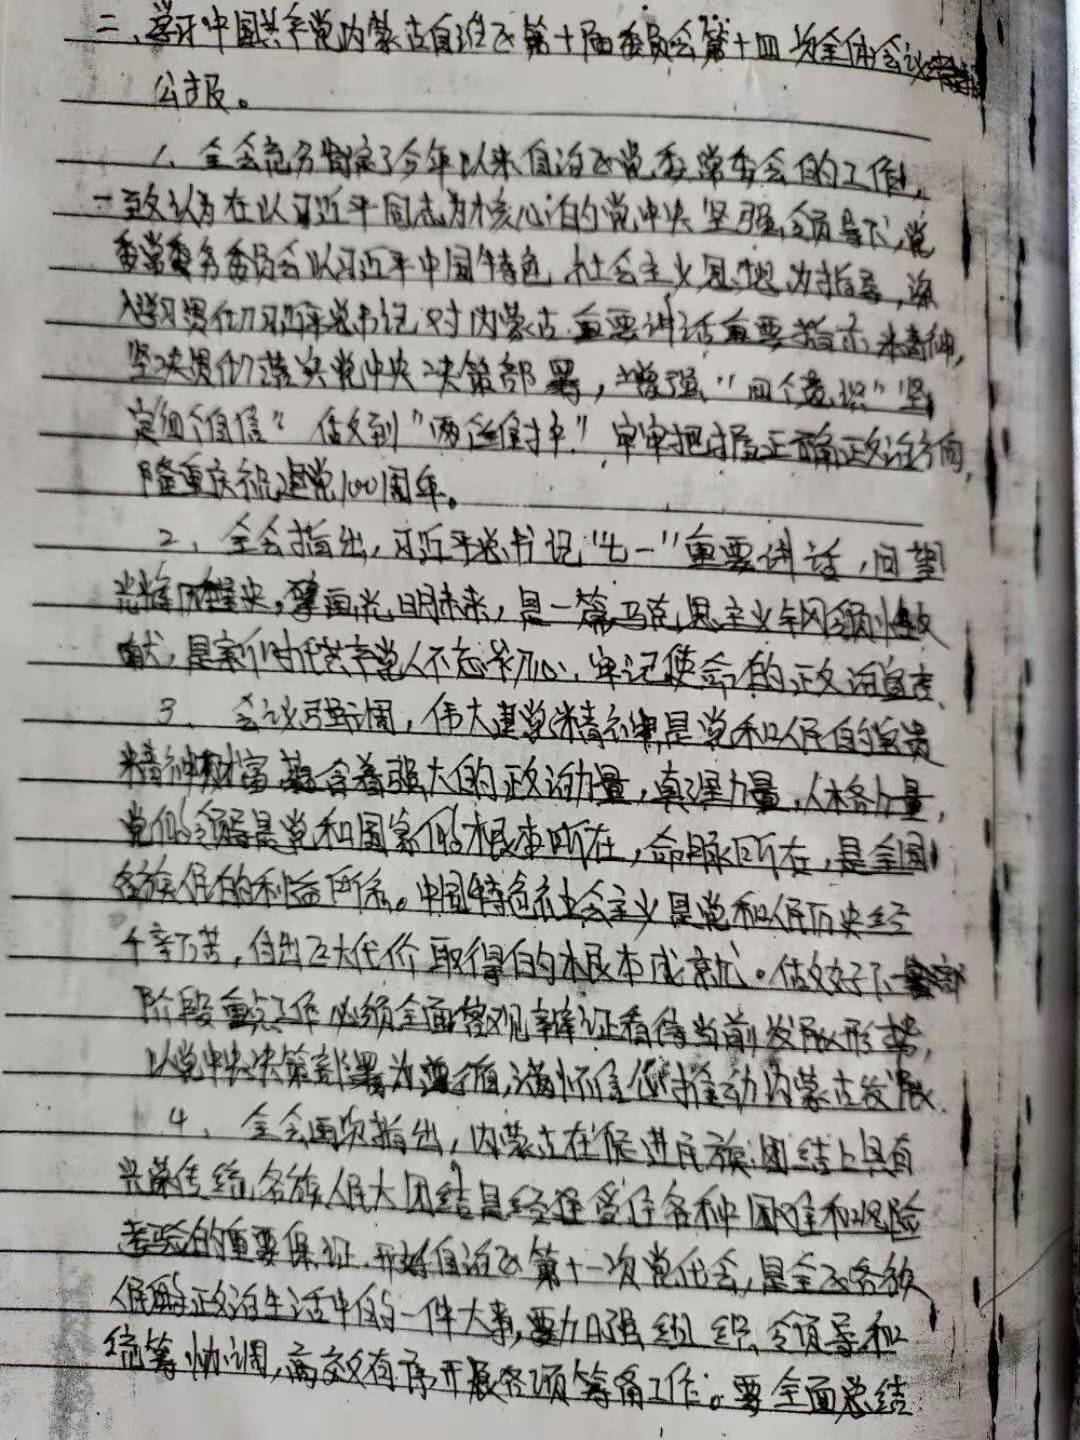 二、学习中国共产党内蒙古自治区第十届委员会第十四次全体会议
公报。
1、全会充分肯定了今年以来自治区党委常委会的工作,
一致认为在以习近平同志为核心的党中央坚强领导下,党
委常委委员会以习近平中国特色社会主义思想为指导,深
入学习贯彻习近平总书记对内蒙古重要讲话重要指示精神,
坚决贯彻落实党中央决策部署,增强“四个意识”坚
定“四个自信”做到“两个维护”牢牢把握正确政治方向,
隆重庆祝建党100周年。
2、全会指出,习近平总书记“七一”重要讲话,回望
光辉历史,擘画光明未来,是一篇马克思主义纲领性文
献,是新时代共产党人不忘初心、牢记使命的政治宣言、
3、会议强调,伟大建党精神是党和人民的宝贵
精神财富 蕴含着强大的政治力量,真理力量,人格力量,
党的领导是党和国家的根本所在,命脉所在,是全国
各族人民的利益所系。中国特色社会主义是党和人民历史经
千辛万苦,付出巨大代价取得的根本成就。做好下一
阶段重点工作必须全面客观辩证看待当前发展形势,
以党中央决策部署为遵循,满怀信心推动内蒙古发展、
4、全会再次指出,内蒙古在促进民族团结上具有
光荣传统,各族人民大团结是经受住各种困难和风险
考验的重要保证 开好自治区第十一次党代会,是全区各族
人民政治生活中的一件大事,要加强组织领导和
统筹协调,高效有序开展各项筹备工作。要全面总结